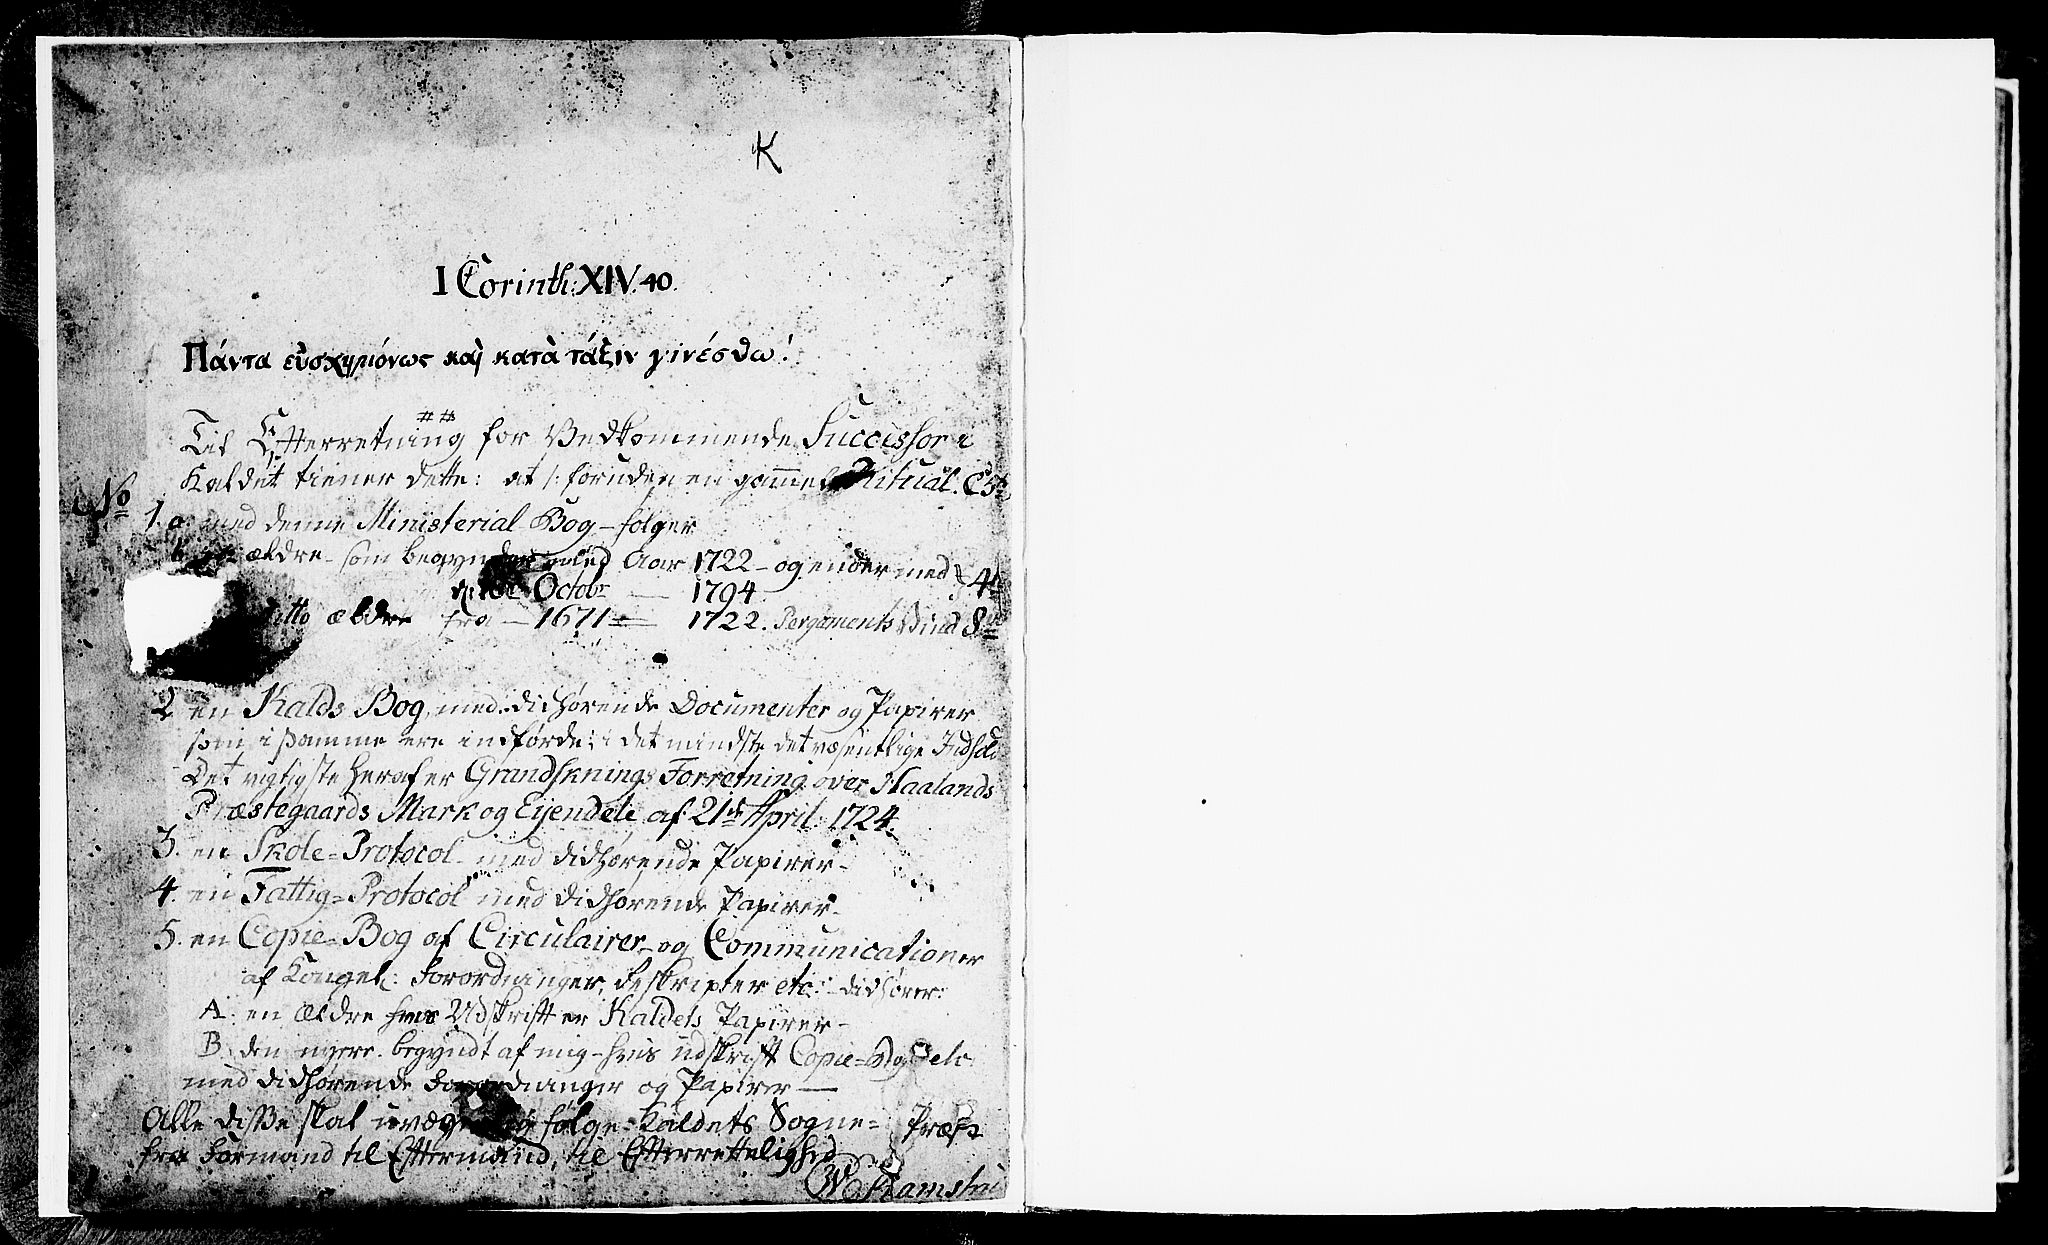 K
I Corinth: XIV. 40.
Πάντα εὐσχημόνως καὶ κατὰ τάξιν γινέσθω!
Til Efterretning for Vedkommende Successor i
Kaldet tiener dette: at /: foruden en gammel Ritual. Etc
No
1. a. med denne Ministerial-Bog - følger
b. ældre - som begynder med Aar 1722 - og ender med 4to
Octobr — 1794.
ditto ældre fra — 1671 — 1722. Pergaments Bind 8vo
2 en Kalds Bog, med didhørende Documenter og Papirer
som i samme ere indførde: i det mindste det væsentlige Indhold
Det vigtigste heraf er Grandsknings Forretning over Haalands
Præstegaards Mark og Eijendele af 21de April 1724.
3. en Skole-Protocol med didhørende Papirer -
4. en Fattig-Protocol med didhørende Papirer -
5. en Copie-Bog af Circulairer - og Communicationer
af Kongel: Forordninger, Reskripter etc: - didhører:
A. en Ældre hvis Udskrift er Kaldets Papirer -
B. den nyere. begyndt af mig - hvis udskrift Copie-Bog etc
med didhørende Forordninger og Papirer —
Alle disse skal følge Kaldets Sogne-Præst
fra Formand til Eftermand, til Efterrettelighed